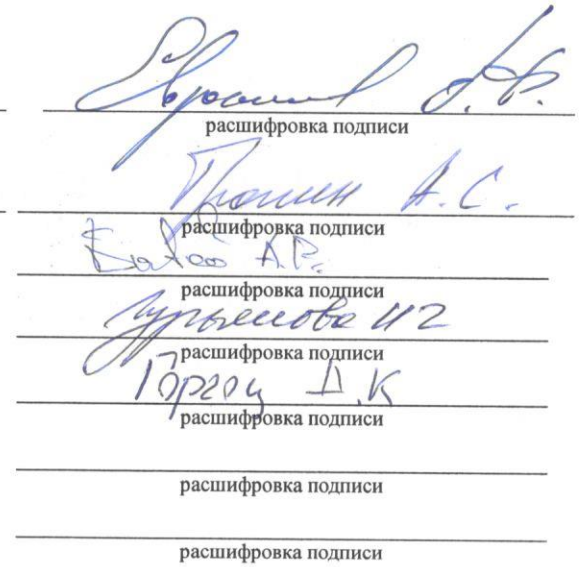 расшифровка подписи
Пронин А.С.
расшифровка подписи
А.Р.
расшифровка подписи
Гурьянова ИГ
расшифровка подписи
Горгоц Д.К
расшифровка подписи
расшифровка подписи
расшифровка подписи